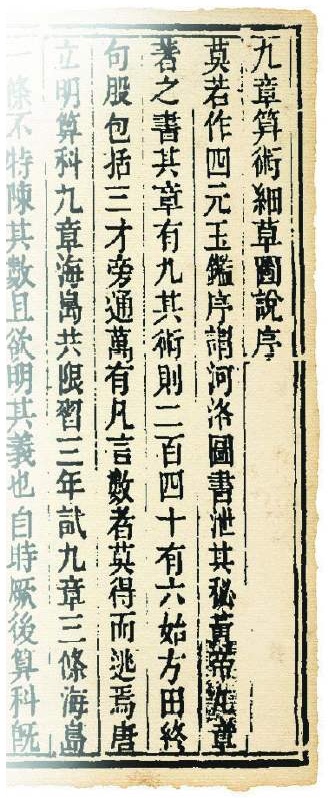 九章算術細草圖說序
莫若作四元玉鑑序謂河洛圖書泄其秘黃帝九章
著之書其章有九其術則二百四十有六始方田終
句股包括三才旁通萬有凡言數者莫得而逃焉唐
立明算科九章海島共限習三年試九章三條海島
一條不特陳其數且欲明其義也自時厥後算科旣